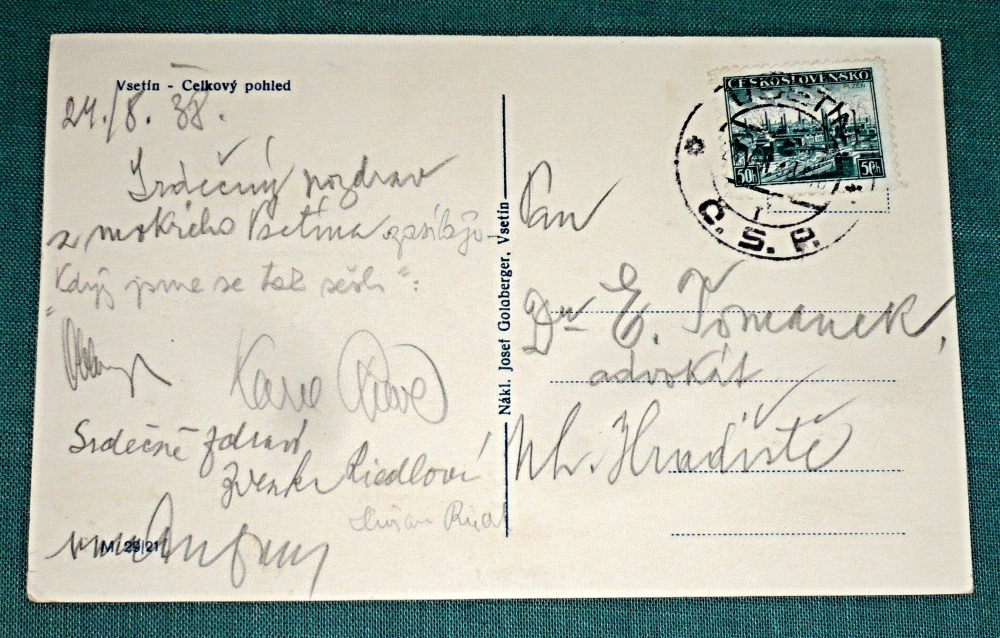 Vsetín - Celkový pohled
24./8. 38.
Srdečný pozdrav
z mokrého Vsetína zasílají
"Když jsme se tak sešli":
Srdečně zdraví
Zdenka Riedlová
M 29/21
Nákl. Josef Goldberger, Vsetín
ČESKOSLOVENSKO
50h 50h
VSETÍN
Č. S. P.
Pan
Dr E. Tománek,
advokát
Uh. Hradiště